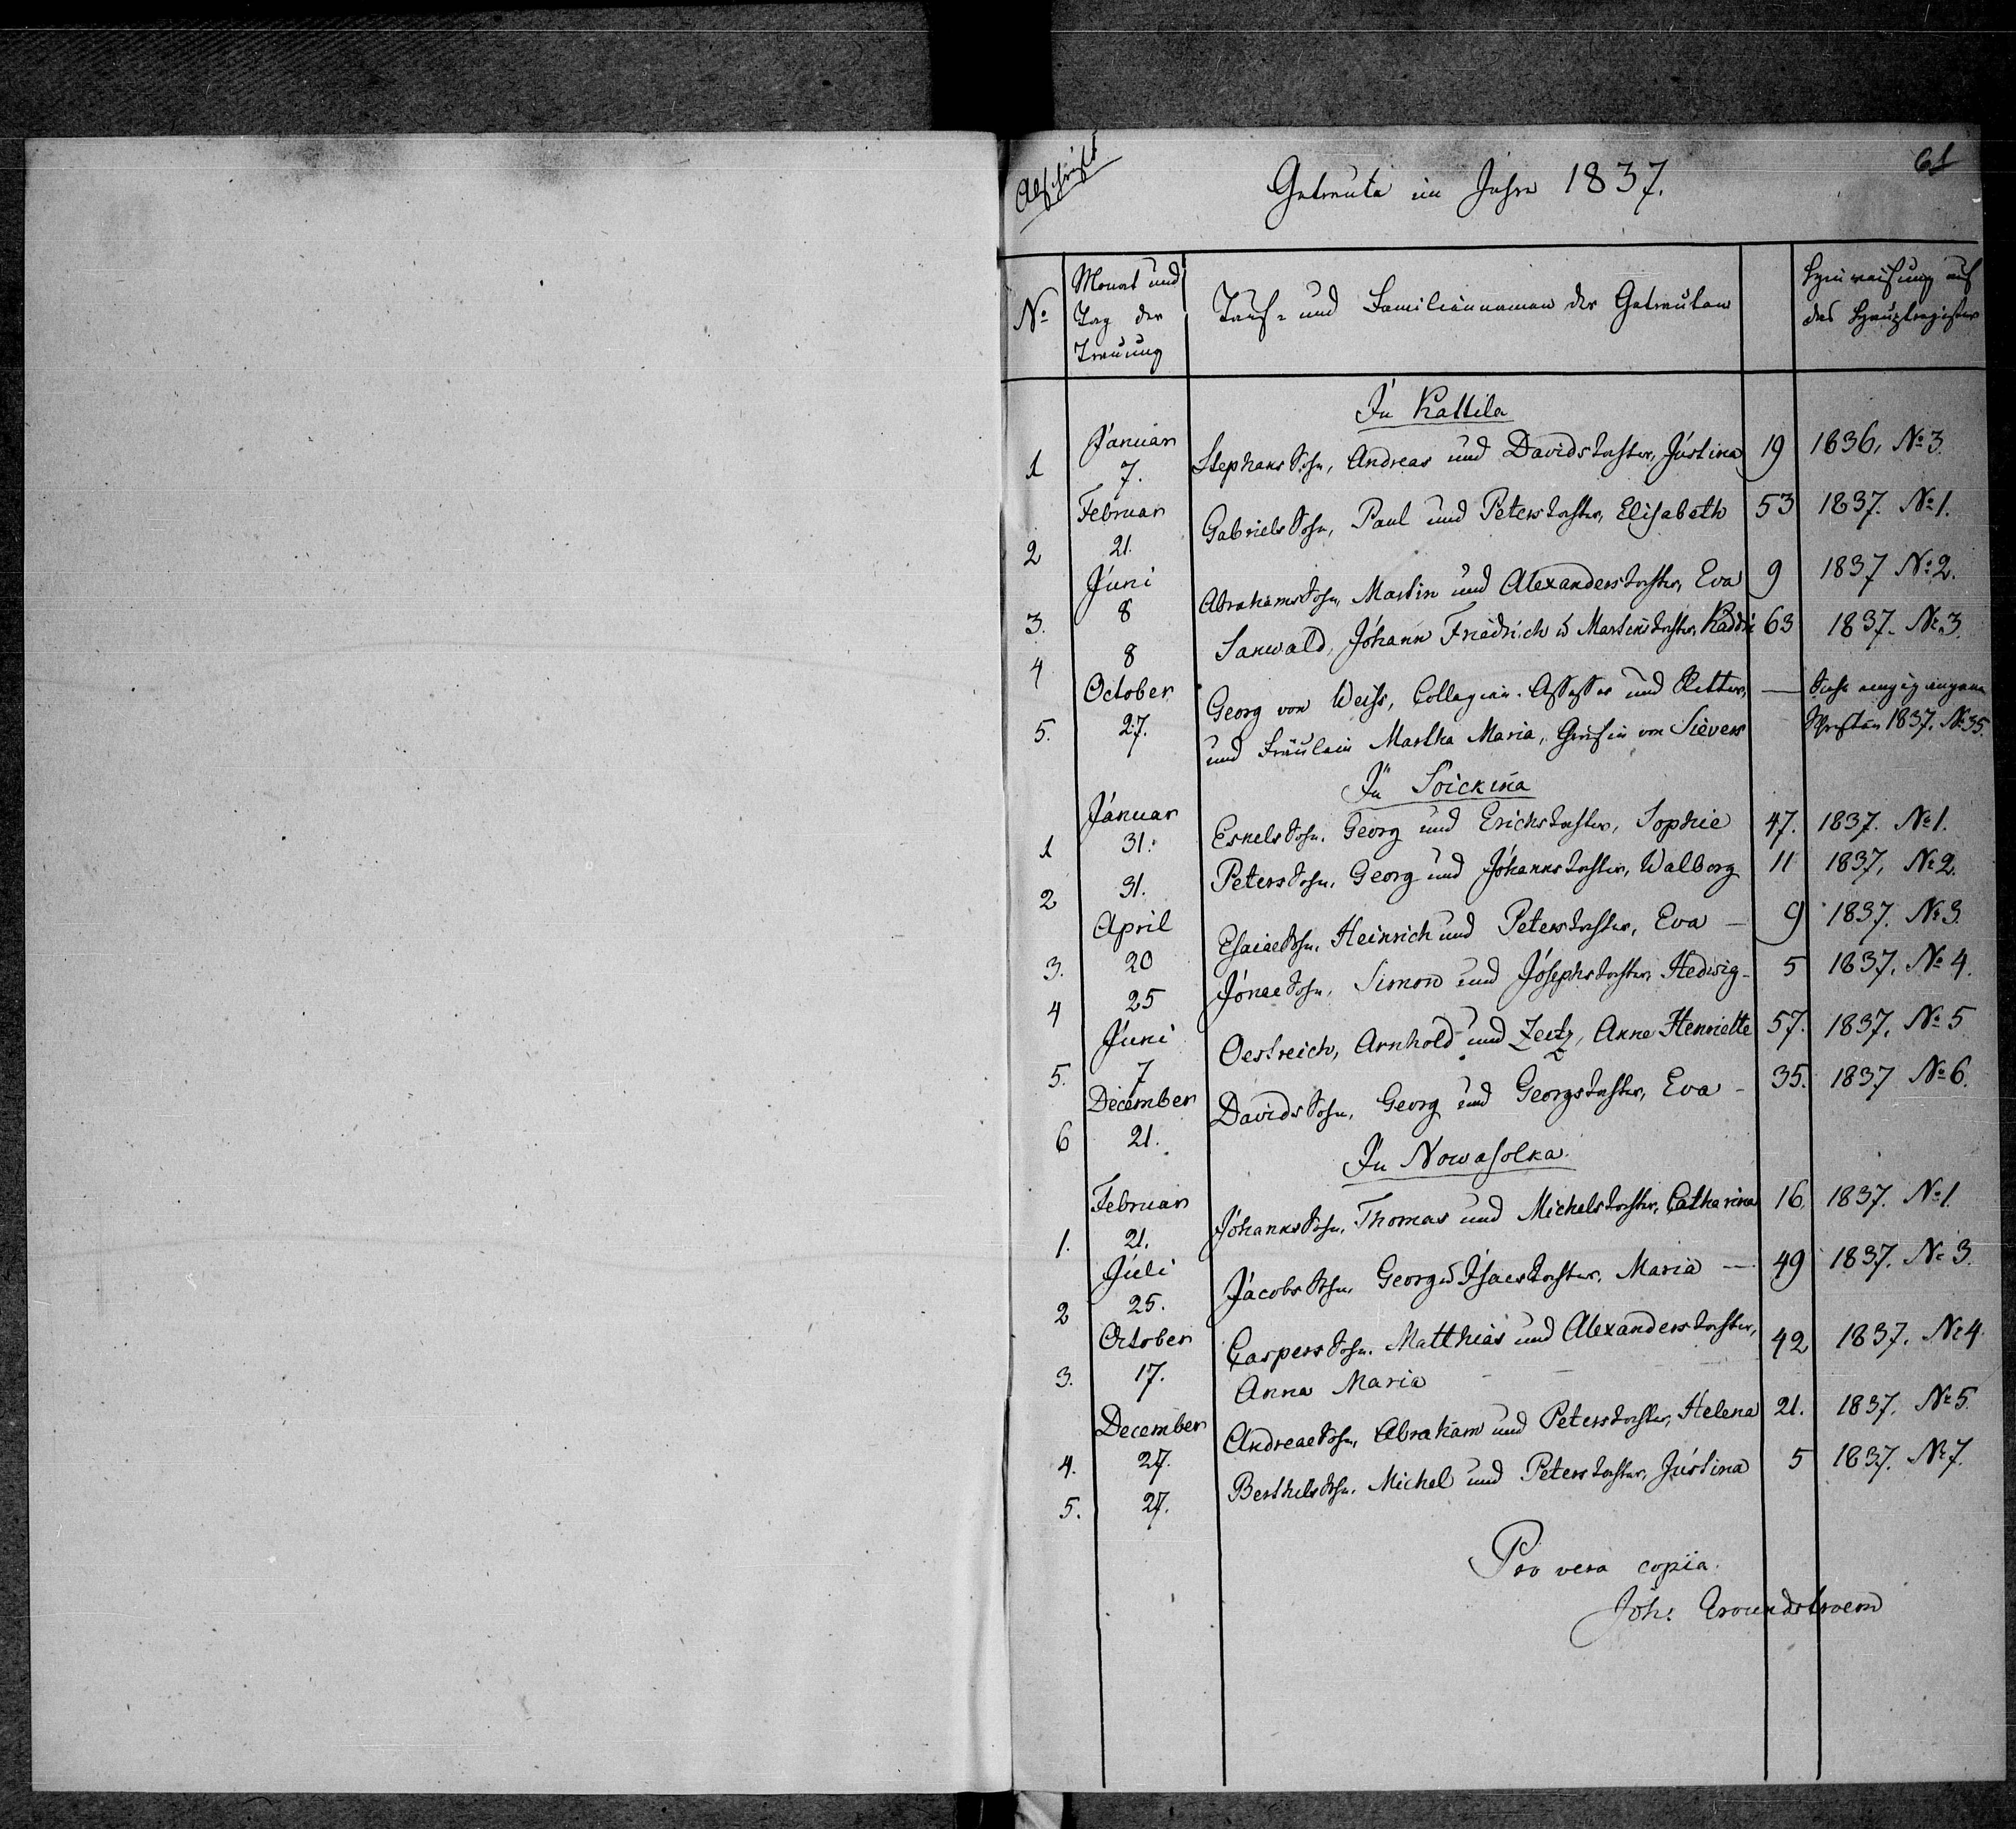 Abschrift
61
Getraute im Jahre 1837.
No
Monat und
Tag der
Trauung
Tauf- und Familiennamen der Getrauten
Hinweisung auf
das Hauptregister
In Kattila
Januar
1 7. Stephans Sohn, Andreas und Davids Tochter, Justina 19 1836, No 3.
Februar
2 21. Gabriels Sohn, Paul und Peters Tochter, Elisabeth 53 1837. No 1.
Juni
3. 8 Abrahams Sohn, Martin und Alexanders Tochter, Eva 9 1837 No 2.
4 8 Sanwald, Johann Friedrich u Martins Tochter, Kaddri 63 1837. No 3.
October
5. 27. Georg von Weiss, Collegien-Assessor und Ritter, — Siehe
und Fräulein Martha Maria, Gräfin von Sievers 1837. No 35.
In Soickina
Januar
1 31. Eskels Sohn, Georg und Erichs Tochter, Sophie 47. 1837. No 1.
2 31. Peters Sohn, Georg und Johanns Tochter, Walborg 11 1837, No 2.
April
3. 20 Esaiae Sohn, Heinrich und Peters Tochter, Eva — 9 1837. No 3.
4 25 Jonae Sohn, Simon und Josephs Tochter, Hedwig - 5 1837. No 4.
Juni
5. 7 Oestreich, Arnhold und Zeitz, Anne Henriette 57. 1837. No 5
December
6 21. Davids Sohn, Georg und Georgs Tochter, Eva - 35. 1837 No 6.
In Nowasolka.
Februar
1. 21. Johanns Sohn, Thomas und Michels Tochter, Catharina 16. 1837. No 1.
Juli
2 25. Jacobs Sohn, Georg u Isaes Tochter, Maria — 49 1837. No 3.
October
3. 17. Caspers Sohn, Matthias und Alexanders Tochter, 42 1837. No 4
Anna Maria
December
4. 27. Andreae Sohn, Abraham und Peters Tochter, Helena 21. 1837. No 5.
5. 27. Berthels Sohn, Michel und Peters Tochter, Justina 5 1837. No 7.
Pro vera copia.
Joh. Groundstroem